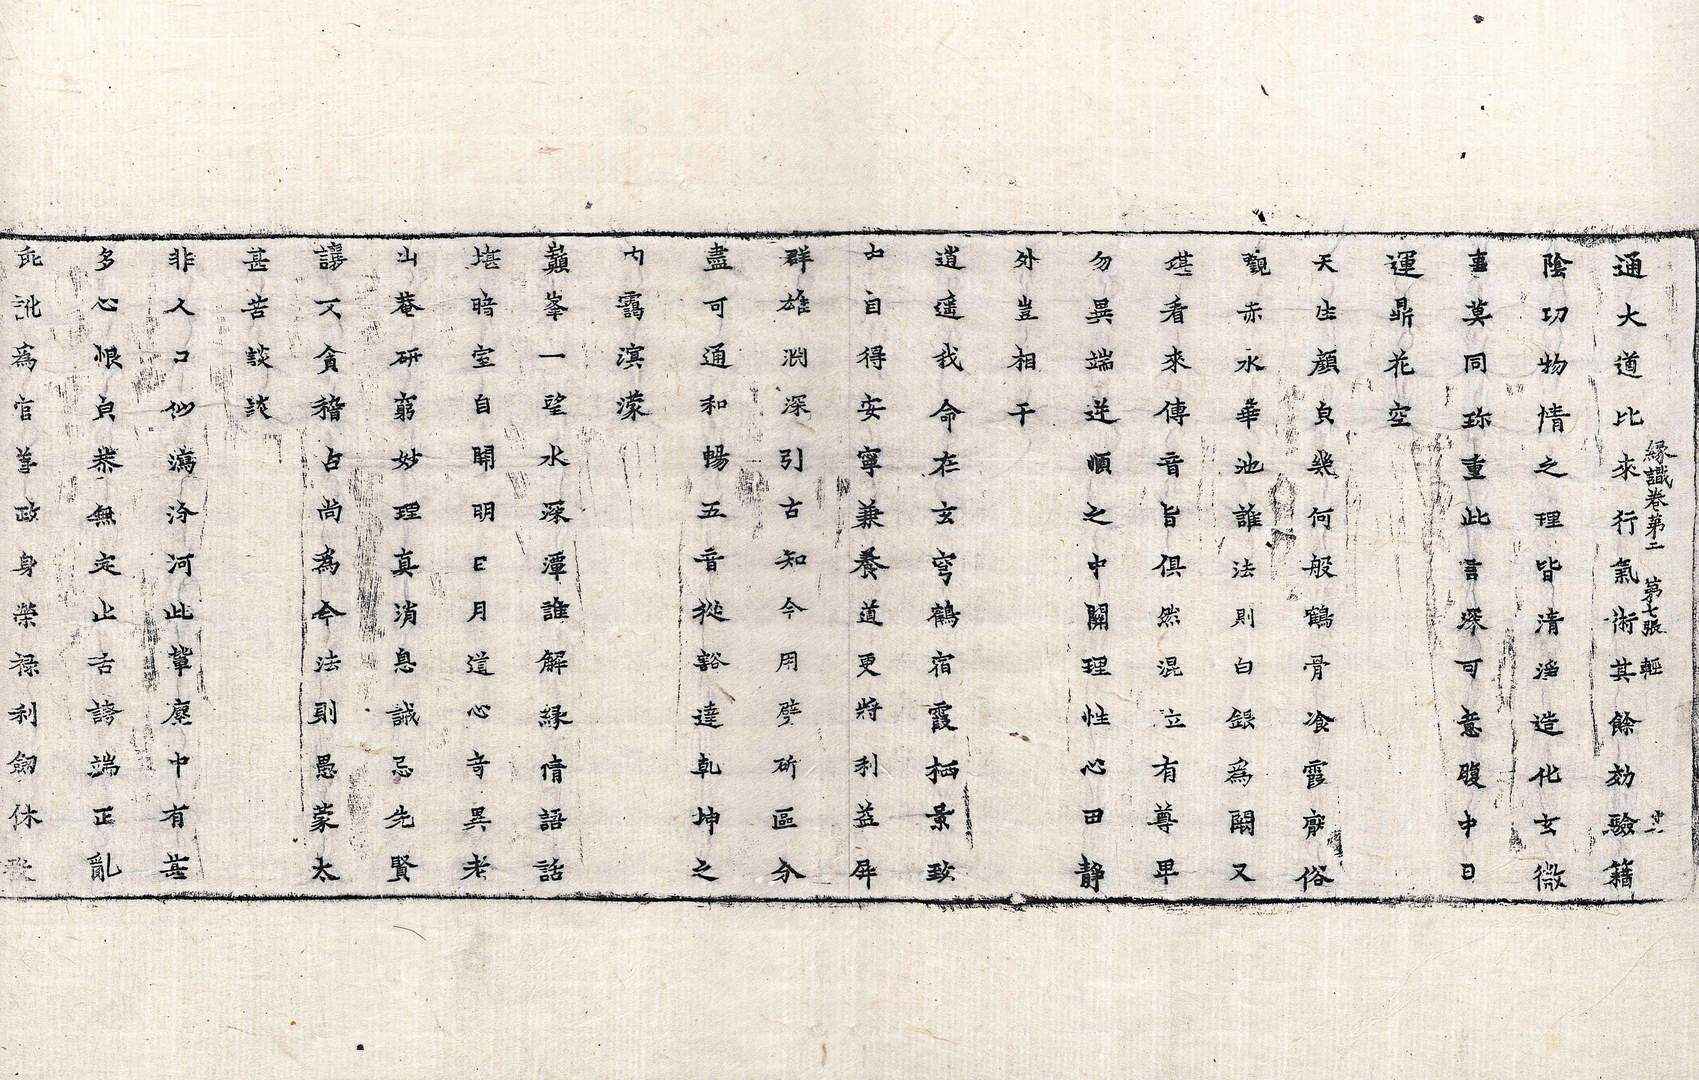 通大道比來行氣術其餘効驗籍
緣識卷第二 第七張 輕
陰功物情之理皆清淨造化玄微
事莫同珎重此言深可意腹中日
運鼎花空
天生顔貞幾何般鶴骨飡霞厭俗
觀赤水華池誰法則白銀為闕又
堪看來傳音旨俱然混泣有尊卑
勿異端逆順之中關理性心田靜
外豈相干
逍遥我命在玄穹鶴宿霞栖景致
古自得安寧兼養道更將利益屏
群雄渊深引古知今用劈析區分
盡可通和暢五音從谿達乹坤之
內靄溟濛
巔峯一望水深潭誰解緣情語話
堪暗室自開明日月道心竒異老
山菴研窮妙理真消息誠忌先賢
讓又貪稽古尚為今法則愚蒙太
甚苦談談
非人口似瀉汾河此輩塵中有甚
多心恨貞恭無定止舌誇端正亂
訛為官莅政身榮祿利劒休